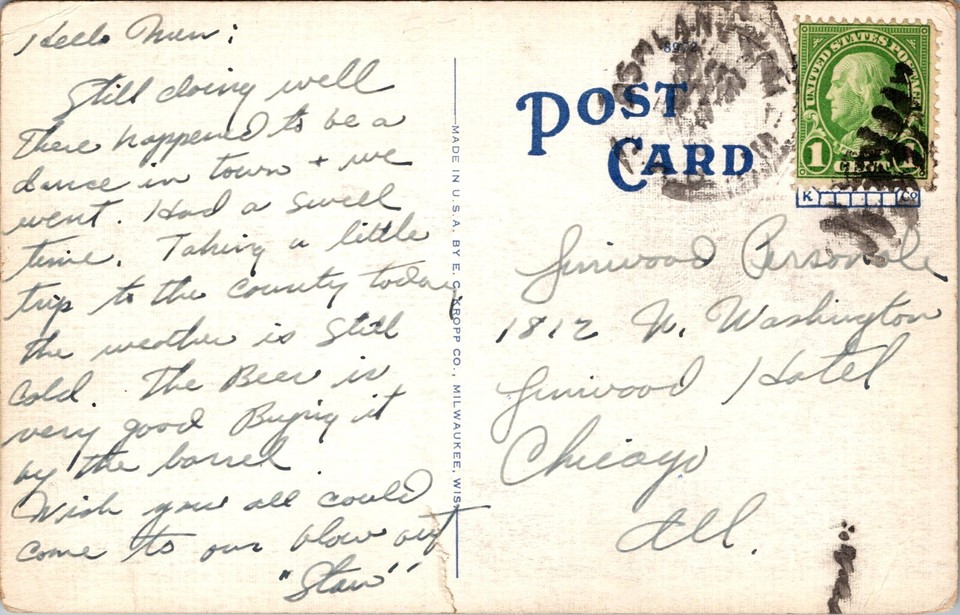 Hello Mun:
Still doing well
There happened to be a
dance in town + we
went. Had a swell
time. Taking a little
trip to the county today
the weather is still
cold. The Beer is
very good Buying it
by the barrel
Wish you all could
come to our blow out
"Stan"
MADE IN U.S.A. BY E. C. KROPP CO., MILWAUKEE, WIS.
POST
CARD
UNITED STATES POSTAGE
1 1
K Co
Linwood Personele
1812 W. Washington
Linwood Hotel
Chicago
Ill.